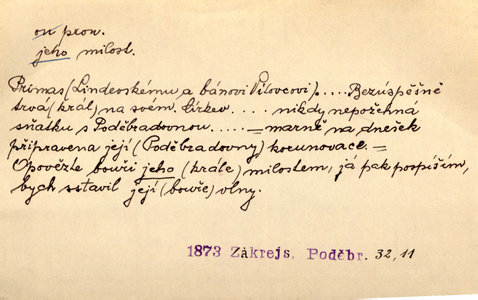 on pron.
jeho milost.
Primas (Lindevskému a bánovi Vilovcovi): .... Bezúspěšně
trvá (král) na svém. Církev.... nikdy nepožehná
sňatku s Poděbradovnou.... = marně na dnešek
připravena její (Poděbradovny) korunovace =
Opovězte bouři jeho (krále) milostem, já pak pospíším,
bych ustavil její (bouře) vlny.
1873 Zákrejs, Poděbr. 32, 11